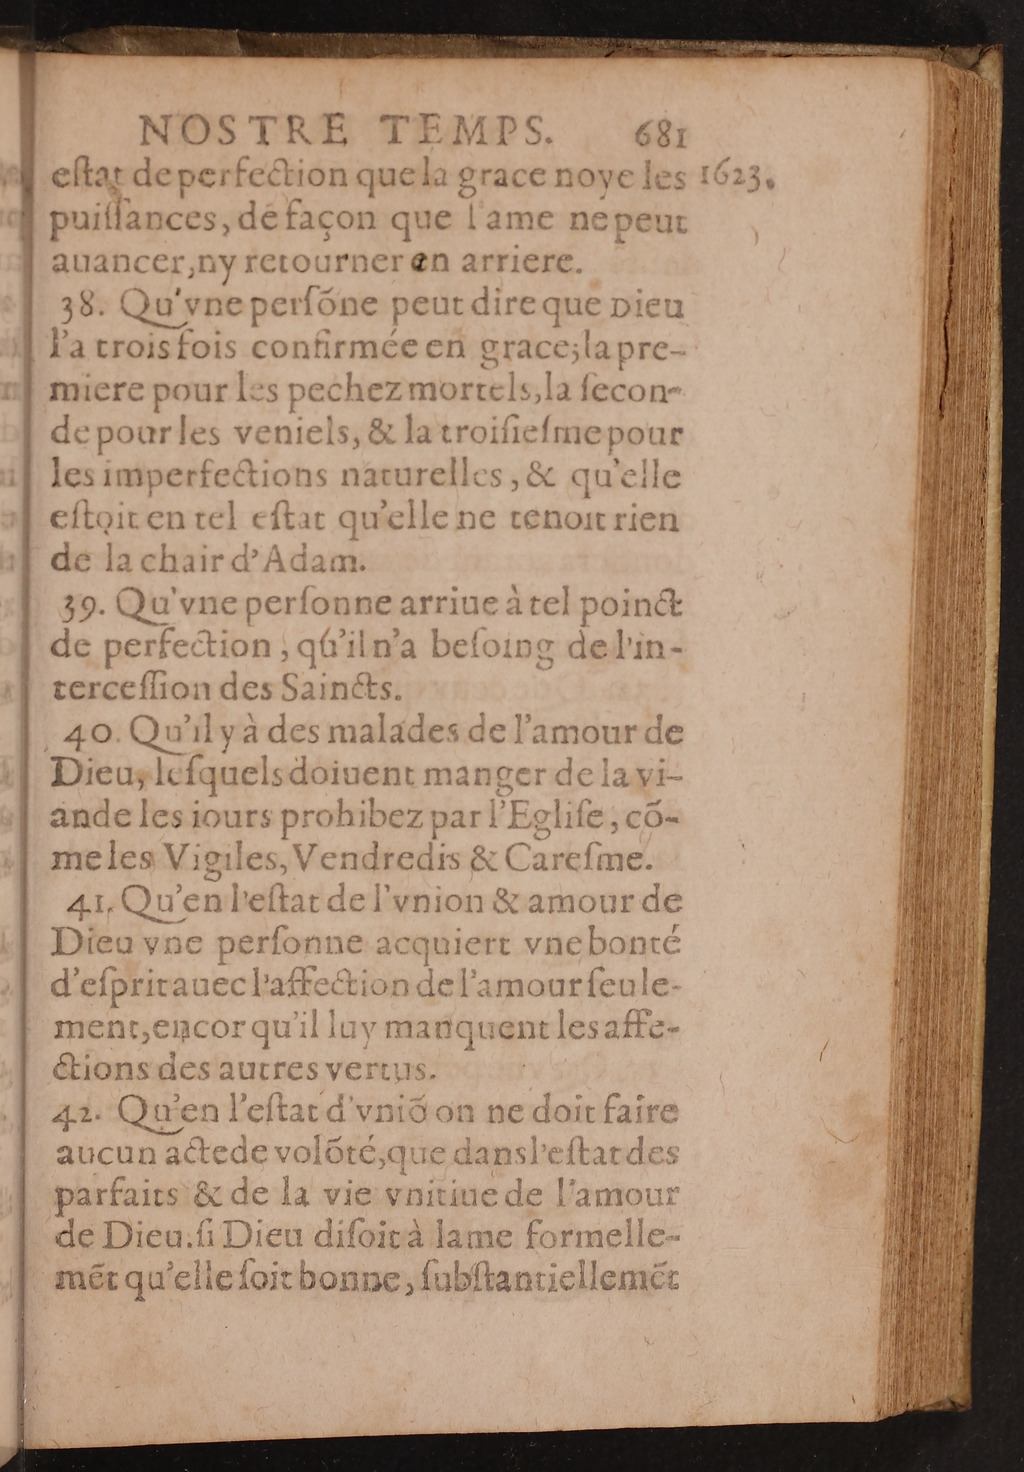 NOSTRE TEMPS. 681
eſtat de perfection que la grace noye les 1623.
puiſſances, de façon que l'ame ne peut
auancer, ny retourner en arriere.
38. Qu'vne perſõne peut dire que Dieu
l'a trois fois confirmée en grace; la pre-
miere pour les pechez mortels, la ſecon-
de pour les veniels, & la troiſieſme pour
les imperfections naturelles, & qu'elle
eſtoit en tel eſtat qu'elle ne tenoit rien
de la chair d'Adam.
39. Qu'vne perſonne arriue à tel poinct
de perfection, qu'il n'a beſoing de l'in-
terceſſion des Saincts.
40. Qu'il y à des malades de l'amour de
Dieu, leſquels doiuent manger de la vi-
ande les iours prohibez par l'Egliſe, cõ-
me les Vigiles, Vendredis & Careſme.
41. Qu'en l'eſtat de l'vnion & amour de
Dieu vne perſonne acquiert vne bonté
d'eſprit auec l'affection de l'amour ſeule-
ment, encor qu'il luy manquent les affe-
ctions des autres vertus.
42. Qu'en l'eſtat d'vniõ on ne doit faire
aucun acte de volõté, que dans l'eſtat des
parfaits & de la vie vnitiue de l'amour
de Dieu. ſi Dieu diſoit à lame formelle-
mẽt qu'elle ſoit bonne, ſubſtantiellemẽt